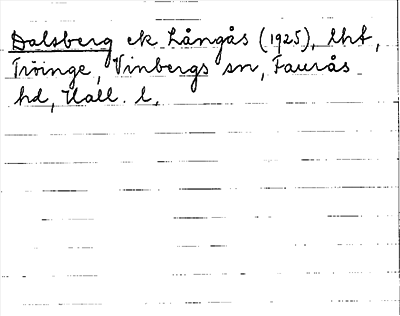 Dalsberg ek Långås (1925), lht,
Tröinge, Vinbergs sn, Faurås
hd, Hall. l.